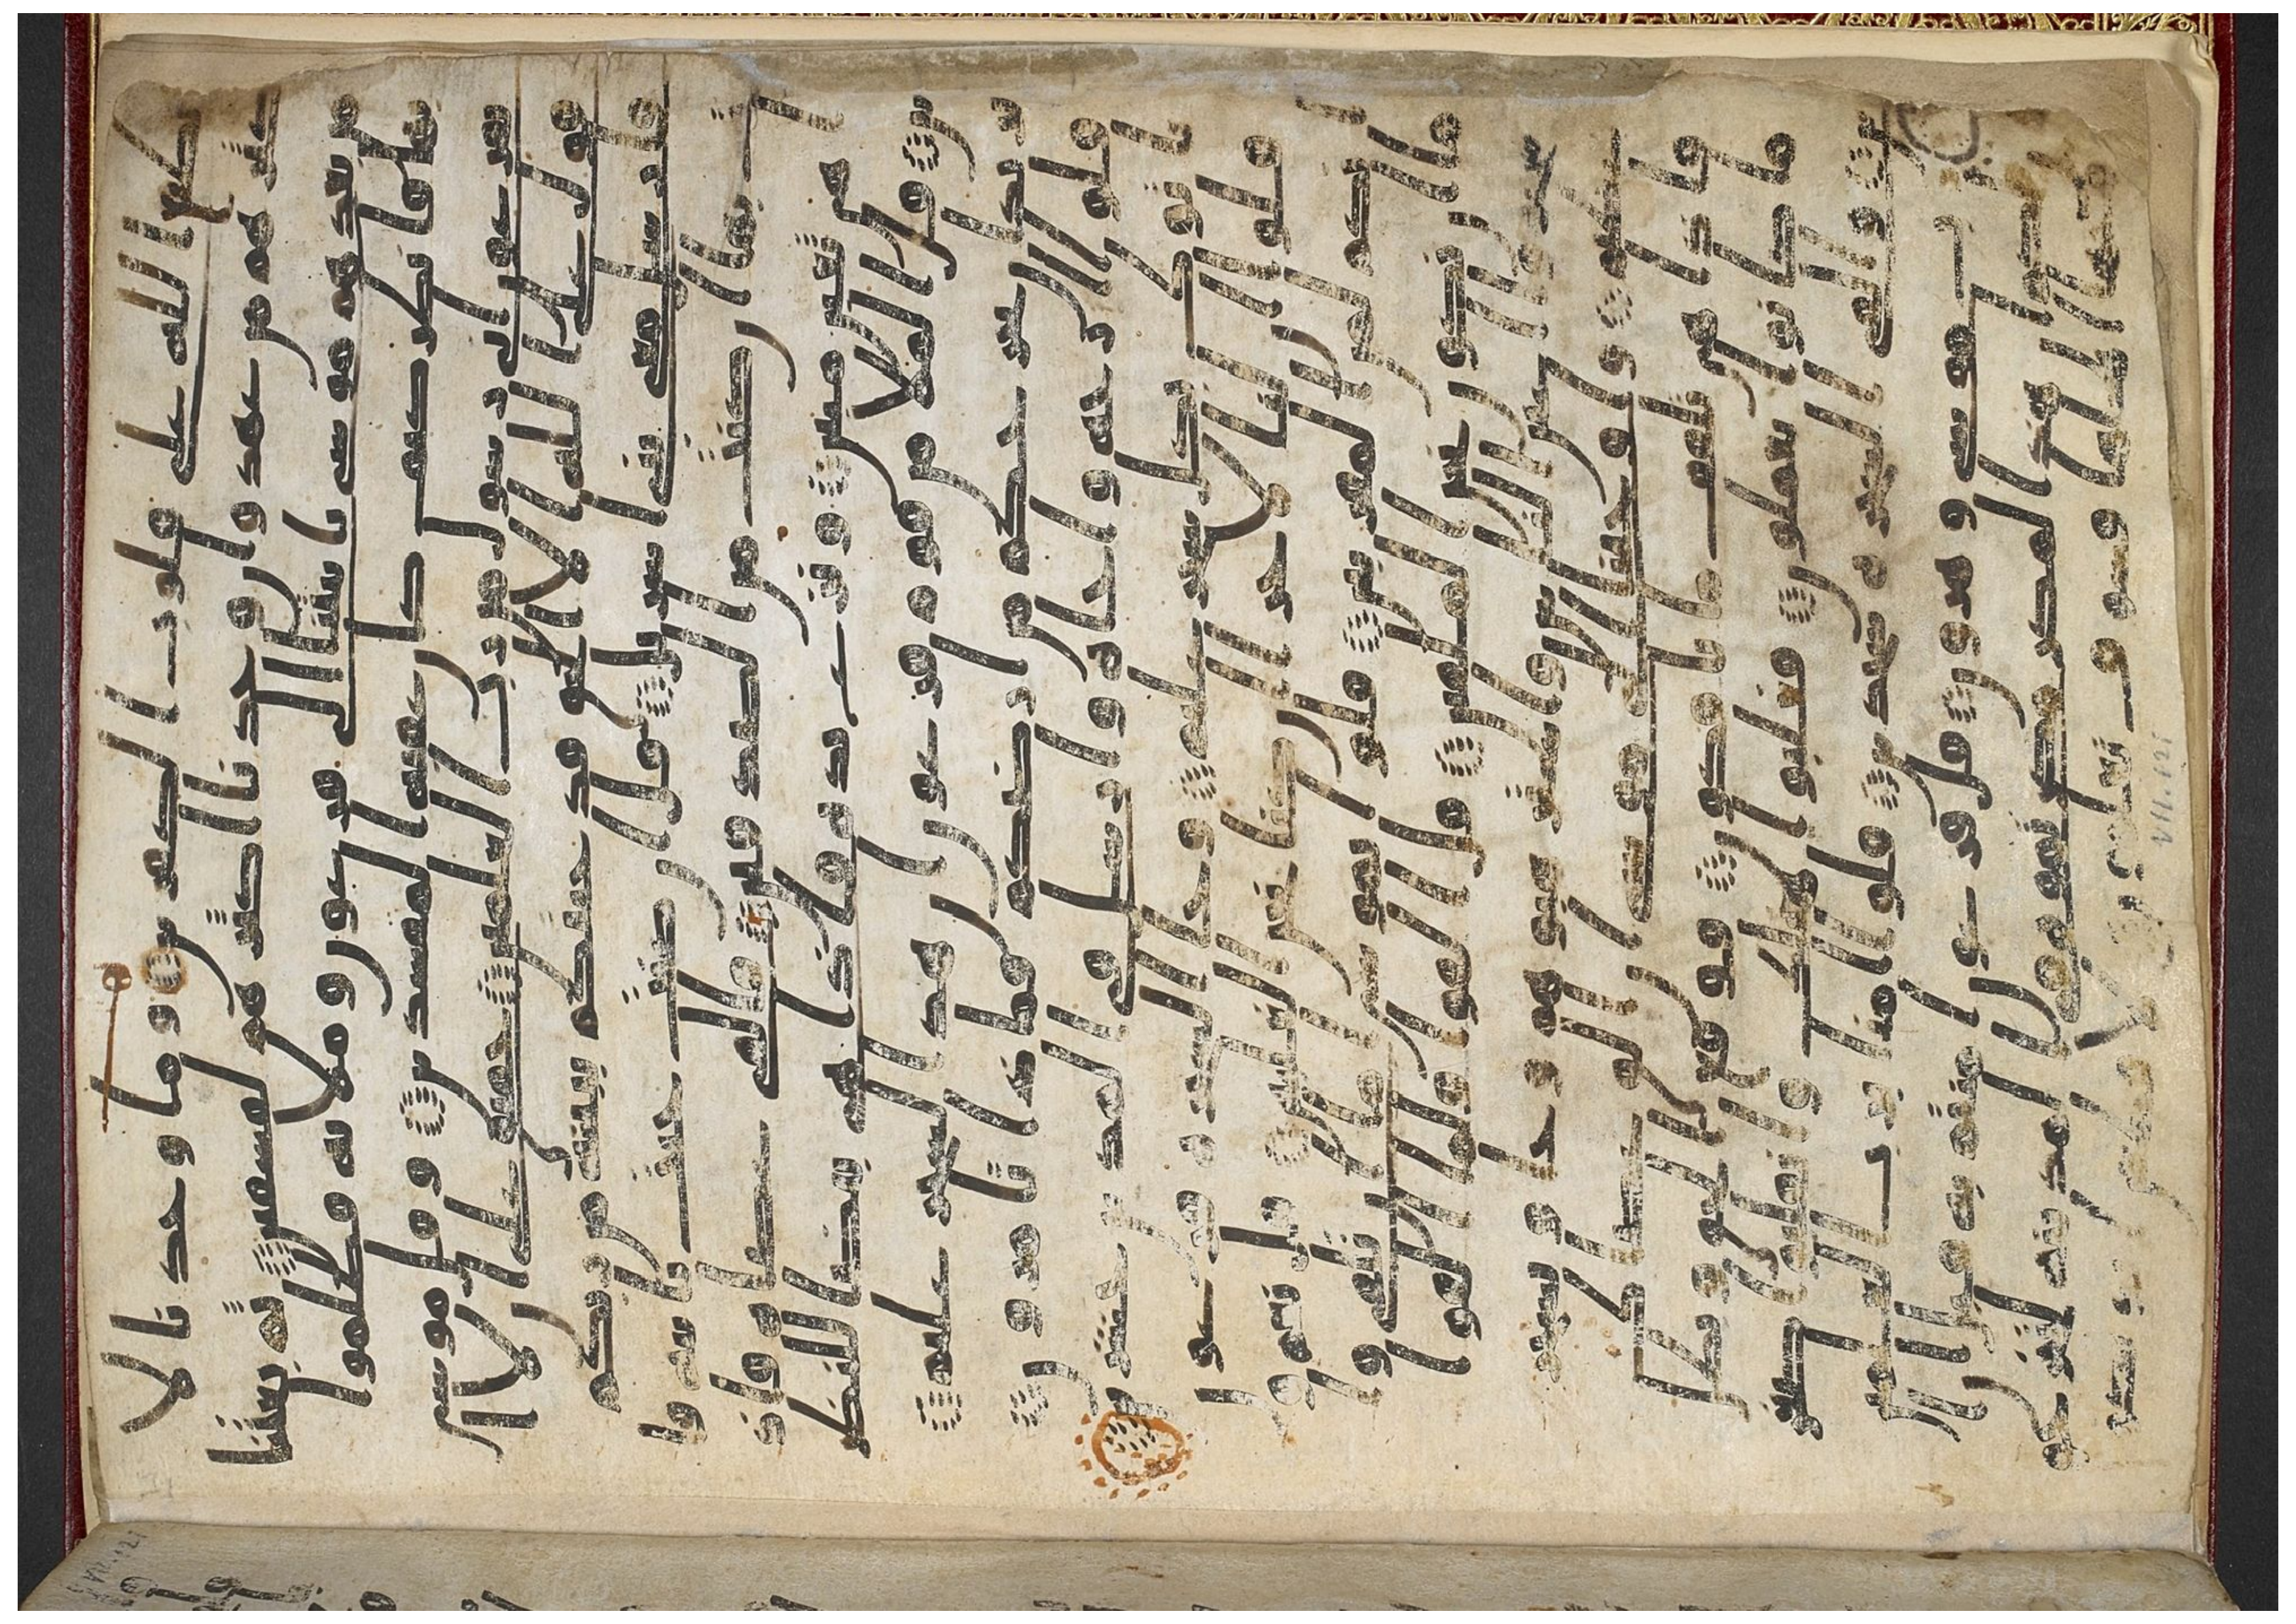 ـع الله على قلوب الكفرين ۝ وما وجدنا لا
كثرهم من عهد وان وجدنا اكثرهم لفسقين ۝ ثم بعثنا
من بعدهم موسى بايتنا الى فرعون وملايه فظلموا
بها فانظر كيف كان عقبة المفسدين ۝ وقال موسى
يفرعون انى رسول من رب العلمين ۝ حقيق على ان لا
اقول على الله الا الحق قد جئتكم ببينة من ربكم
فارسل معى بنى اسريل ۝ قال ان كنت جئت باية فا
ت بها ان كنت من الصدقين ۝ فالقى عصاه فاذ
ا هى ثعبن مبين ۝ ونزع يده فاذا هى بيضا للنظر
ين ۝ قال الملا من قوم فرعون ان هذا لسحر عليم ۝
يريد ان يخرجكم من ارضكم فماذا تامرون ۝
قالوا ارجه واخاه وارسل فى المدين حشرين ۝
ياتوك بكل سحر عليم ۝ وجا السحرة فرعو
ن قالوا ان لنا لاجرا ان كنا نحن الغلبين ۝ قال نعم
وانكم لمن المقربين ۝ قالوا يموسى اما ان تلقى وا
ما ان نكون نحن الملقين ۝ قال القوا فلما القوا
سحروا اعين الناس واسترهبوهم وجاو بسحر
عظيم ۝ واوحينا الى موسى ان الق عصاك
فاذا هى تلقف ما يافكون ۝ فوقع الحق وبطل
ما كانوا يعملون ۝ فغلبوا هنالك وانقلبوا صغر
ين ۝ والقى السحرة سجدين ۝ قالوا امنا برب العلم
ين ۝ رب موسى وهرون ۝ قال فرعون امنتم به قبل ان
اذن لكم ان هذا لمكر مكرتموه فى المدينة لتخرجو
ا منها اهلها فسوف تعلمون ۝